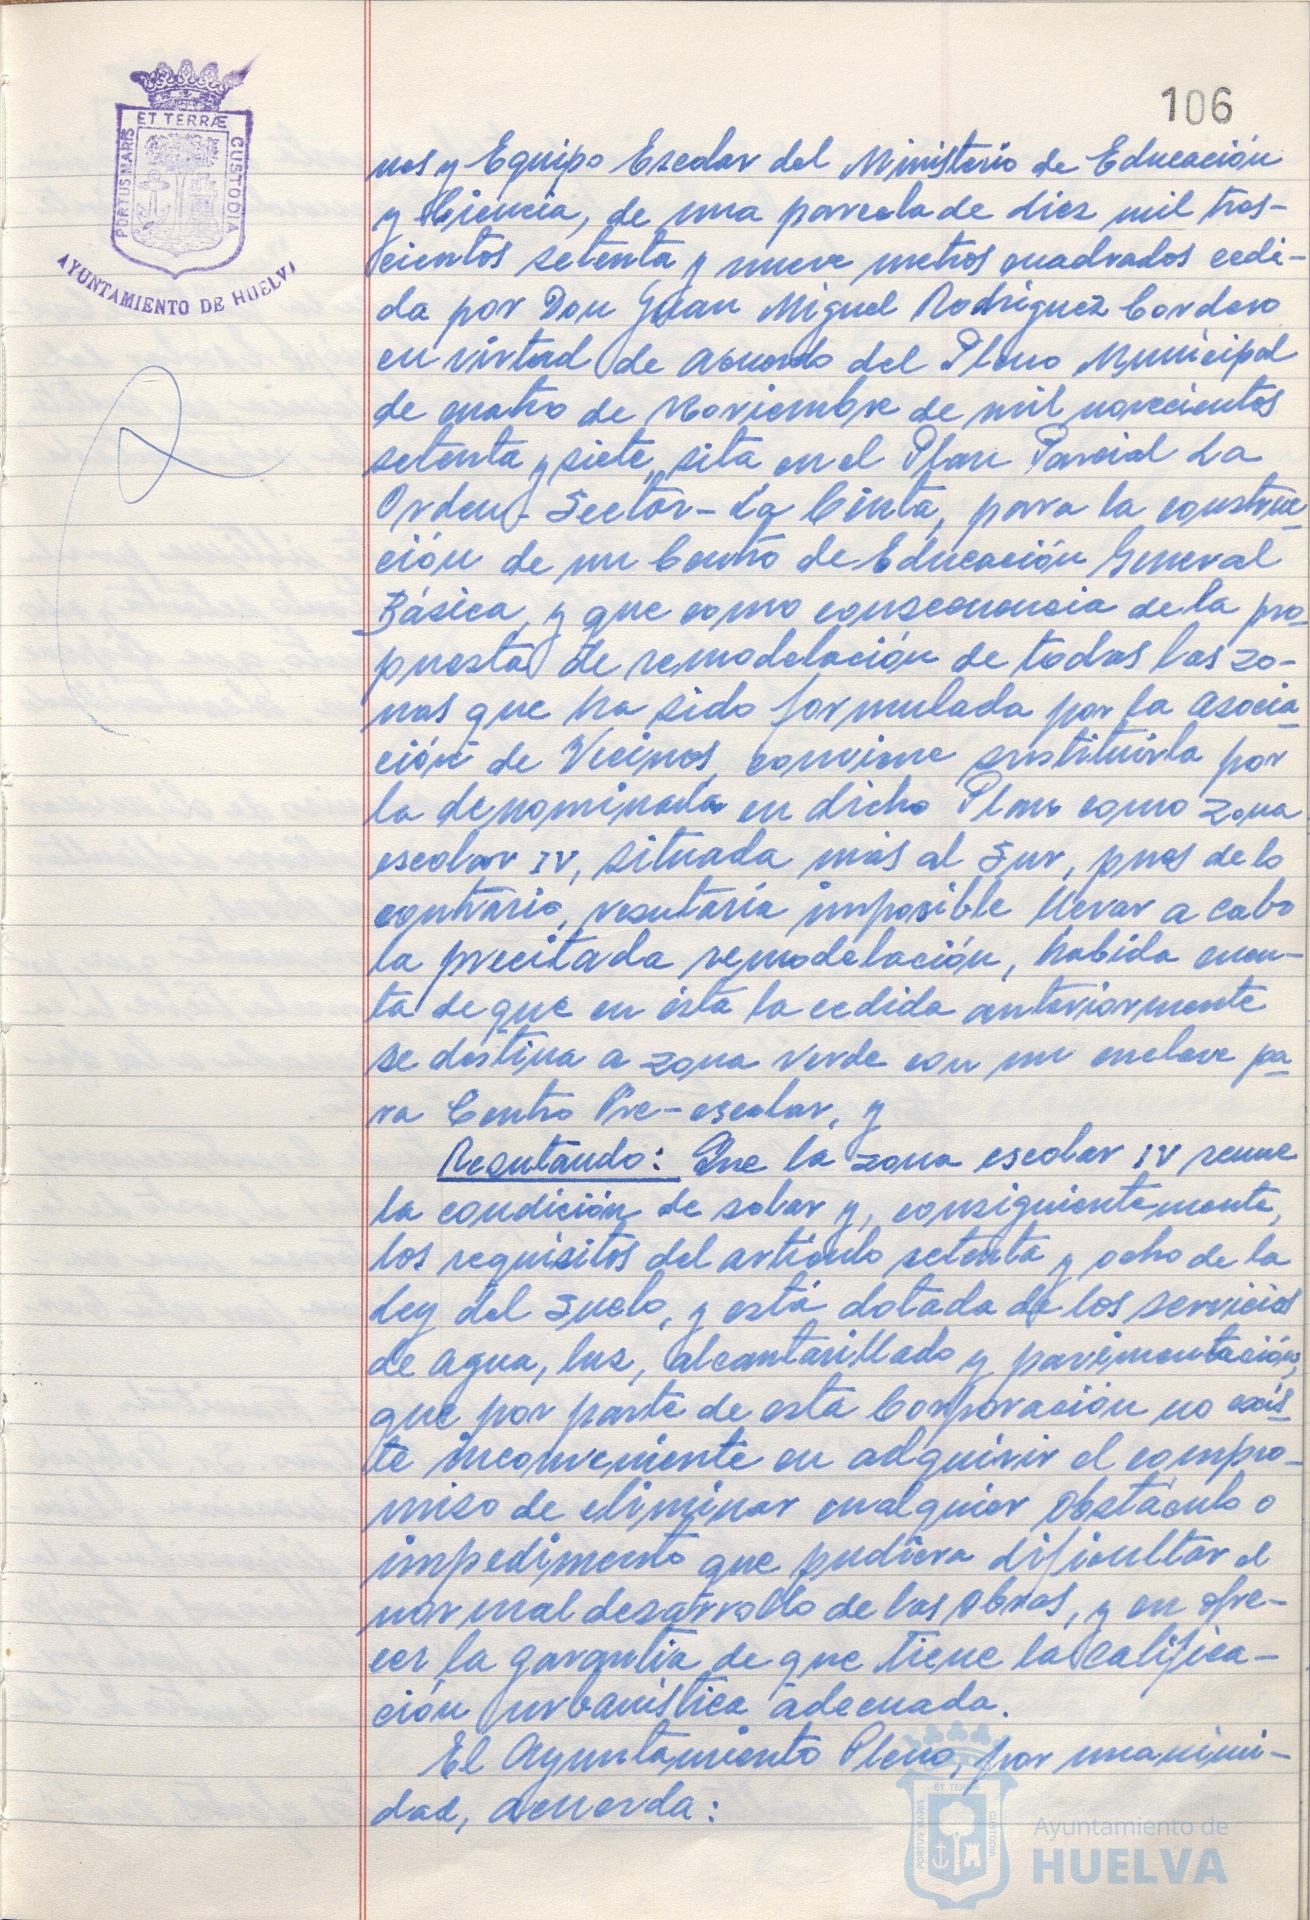 106
ET TERRÆ
PORTUS MARIS
CUSTODIA
AYUNTAMIENTO DE HUELVA
nes y Equipo Escolar del Ministerio de Educación
y Ciencia, de una parcela de diez mil tres-
cientos setenta y nueve metros cuadrados cedi-
da por Don Juan Miguel Rodriguez Cordero
en virtud de acuerdo del Pleno Municipal
de cuatro de Noviembre de mil novecientos
setenta y siete, sita en el Plan Parcial La
Orden- Sector- La Cinta, para la construc-
ción de un Centro de Educación General
Básica, y que como consecuencia de la pro-
puesta de remodelación de todas las zo-
nas que ha sido formulada por la Asocia-
ción de Vecinos, conviene sustituirla por
la denominada en dicho Plano como zona
escolar IV, situada más al Sur, pues de lo
contrario, resutaría imposible llevar a cabo
la precitada remodelación, habida cuen-
ta de que en ésta la cedida anteriormente
se destina a zona verde con un enclave pa-
ra Centro Pre-escolar, y
Resutando: Que la zona escolar IV reune
la condición de solar y, consiguientemente,
los requisitos del artículo setenta y ocho de la
Ley del Suelo, y está dotada de los servicios
de agua, luz, alcantarillado y pavimentación,
que por parte de esta Corporación no exis-
te inconveniente en adquirir el compro-
miso de eliminar cualquier obstáculo o
impedimento que pudiera dificultar el
normal desarrollo de las obras, y en ofre-
cer la garantía de que tiene la califica-
ción urbanística adecuada.
El Ayuntamiento Pleno, por unanimi-
dad, acuerda:
ET TERRÆ
PORTUS MARIS
CUSTODIA
Ayuntamiento de
HUELVA